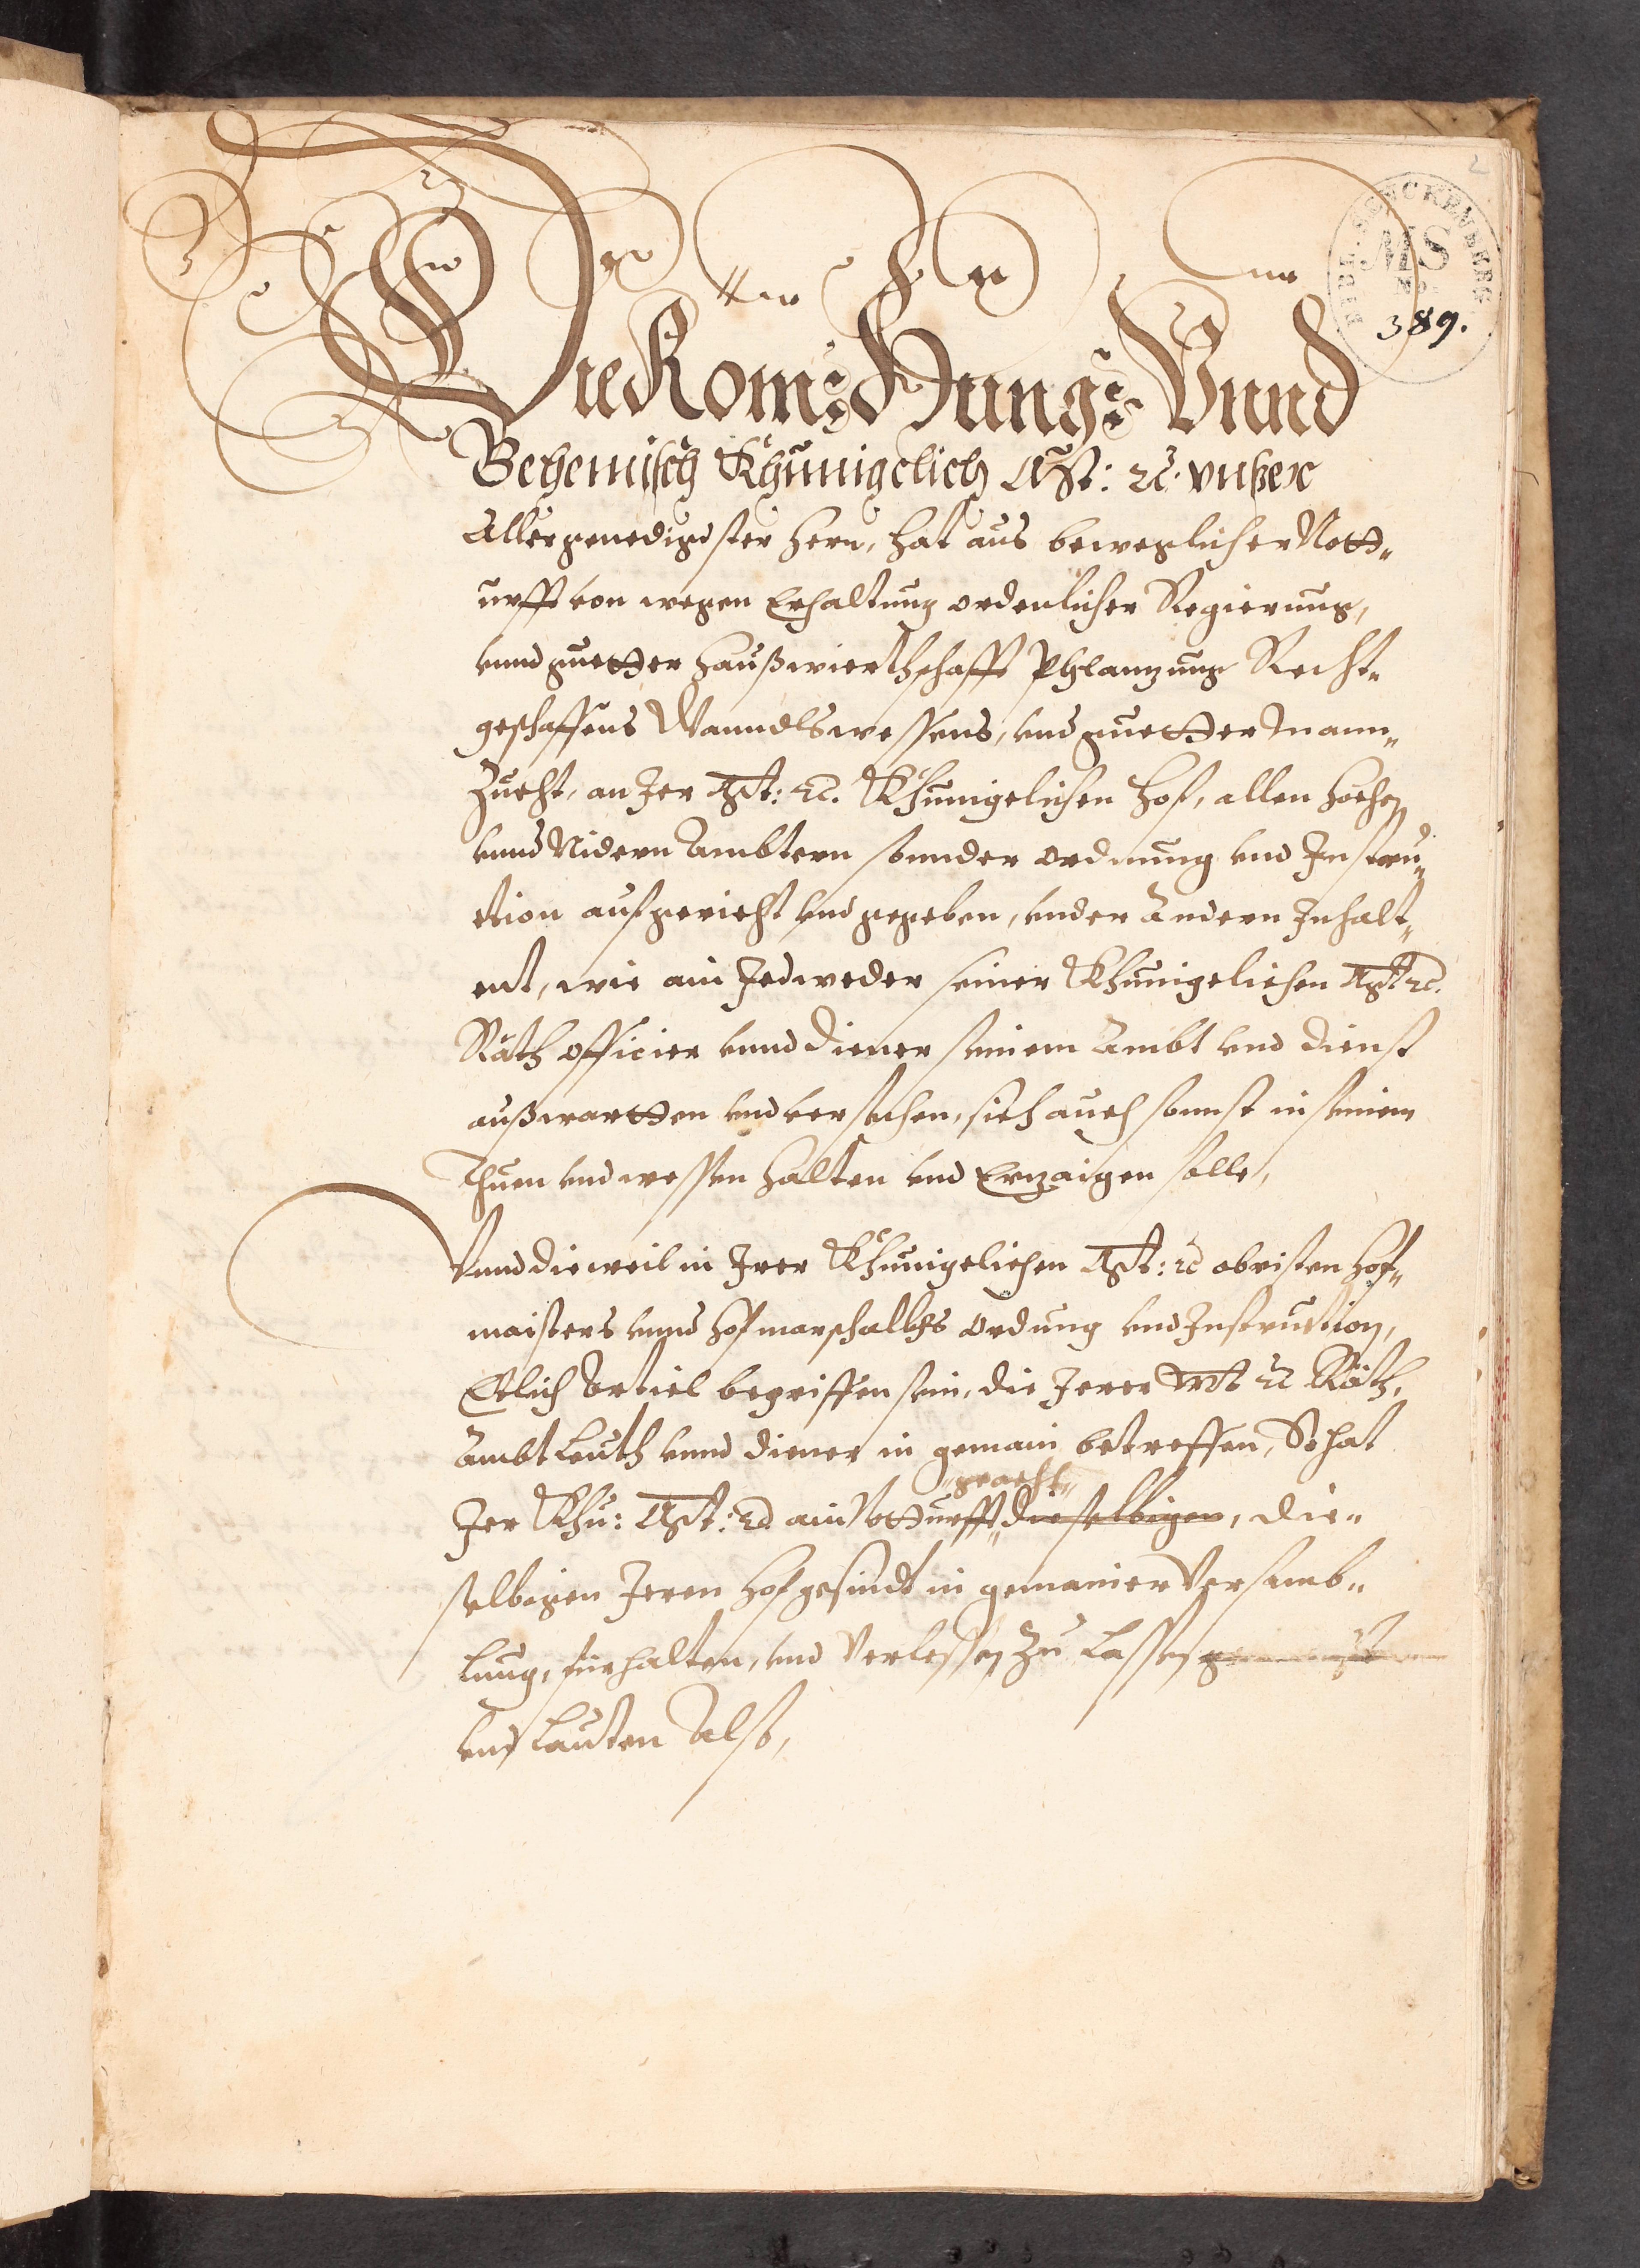 2
BIBL. SENCKENBERG.
MS
No.
389.
Die Rom: Hung: Vnnd
Behemisch Khunigclich Mt: 2c. vnser
Allergenedigister Herr, hat aus beweglicher Nott„
urfft von wegen Erhaltung ordenlicher Regierung,
vnnd guetter Haußwierthschafft Phlanzung Recht„
geschaffens Wanndlswessens, vnd guetter Mann„
Zucht, an Jer Mt: 2c. Khunigclichen Hof, allen Hochen
vnnd Nidern Ambtern sonnder Ordnung vnd Instru„
ction aufgericht vnd gegeben, vnder Andern Inhalt„
ent, wie ain Jedweder seiner Khunigelichen Mt 2c.
Räth officier vnnd diener seinem Ambt vnd dienst
außwartten vnd versechen, sich auch sonnst in seinem
Thuen vnd wessen halten vnd Erzaigen solle,
Vnnd dieweil in Jrer Khunigelichen Mt: 2c obristen Hof„
maisters vnnd Hofmarschallchs Ordung vnd Instruction,
Etlich Articl begriffen sein, die Jerer Mt 2c Räth,
Ambtleuth vnnd diener in gemain betreffen, So hat
„geacht„
Jer Khu: Mt: 2c. ain Notturfft„ dieselbigen, die„
selbigen Jeren Hofgesindt in gemainer Versamb„
lung, fürhalten, vnd Verlessen zu Lassen
vnd Lautten Also,